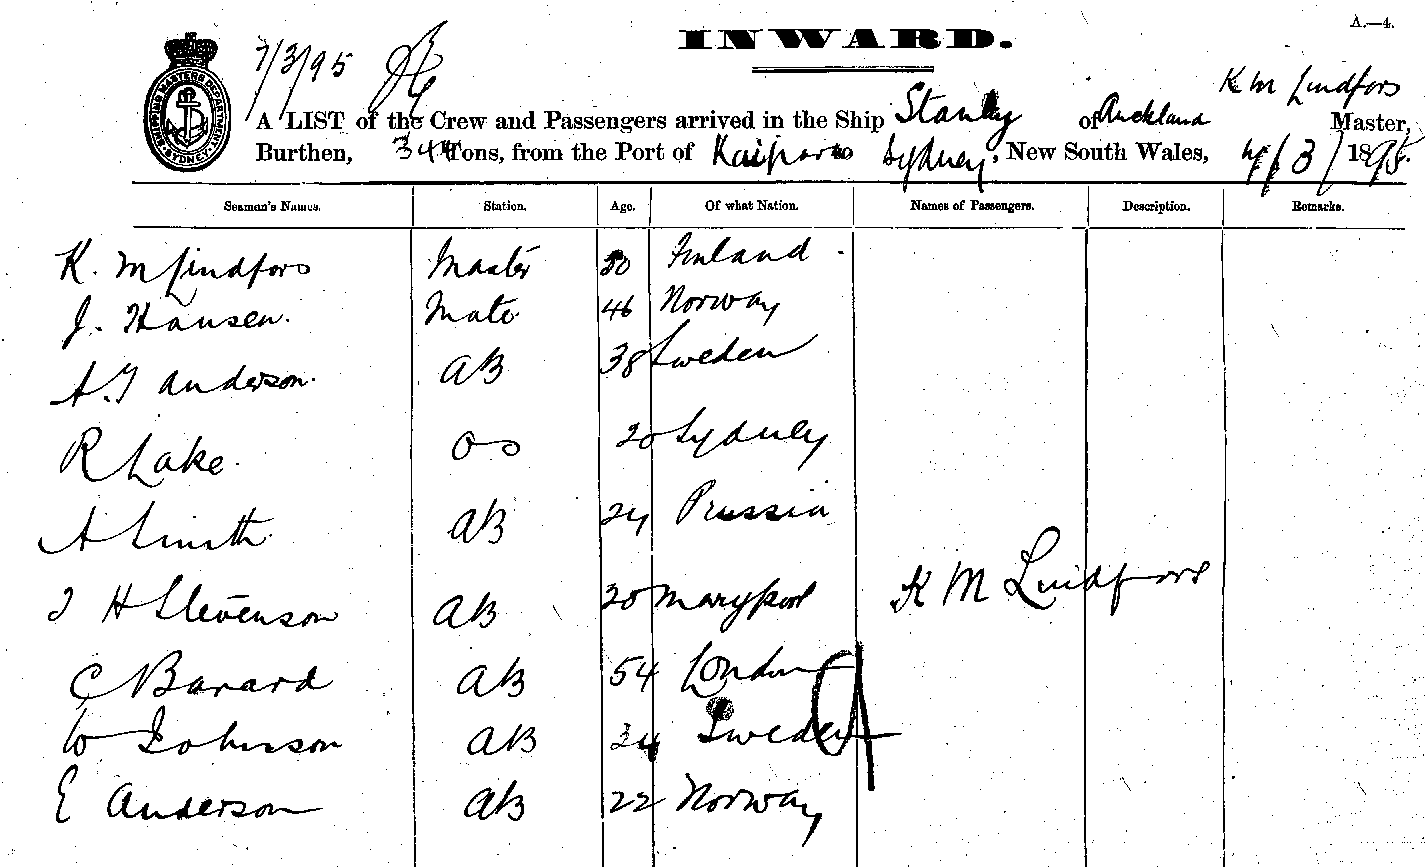 A.—4.
INWARD.
7/3/95
K M Lindfors
A LIST of the Crew and Passengers arrived in the Ship Stanley of Auckland Master,
Burthen, 344 Tons, from the Port of Kaipara to Sydney, New South Wales, 4/3/1895.
SHIPPING MASTERS DEPARTMENT SYDNEY
Seamen's Names. Station. Age. Of what Nation. Names of Passengers. Description. Remarks.
K. M Lindfors Master 50 Finland
J. Hansen. Mate 46 Norway
A. J Anderson. AB 38 Sweden
R Lake. OS 20 Sydney
A Smith AB 24 Prussia
J H Stevenson AB 30 Maryport
K M Lindfors
C Barard AB 54 London
W Johnsson AB 34 Sweden
E Anderson AB 22 Norway